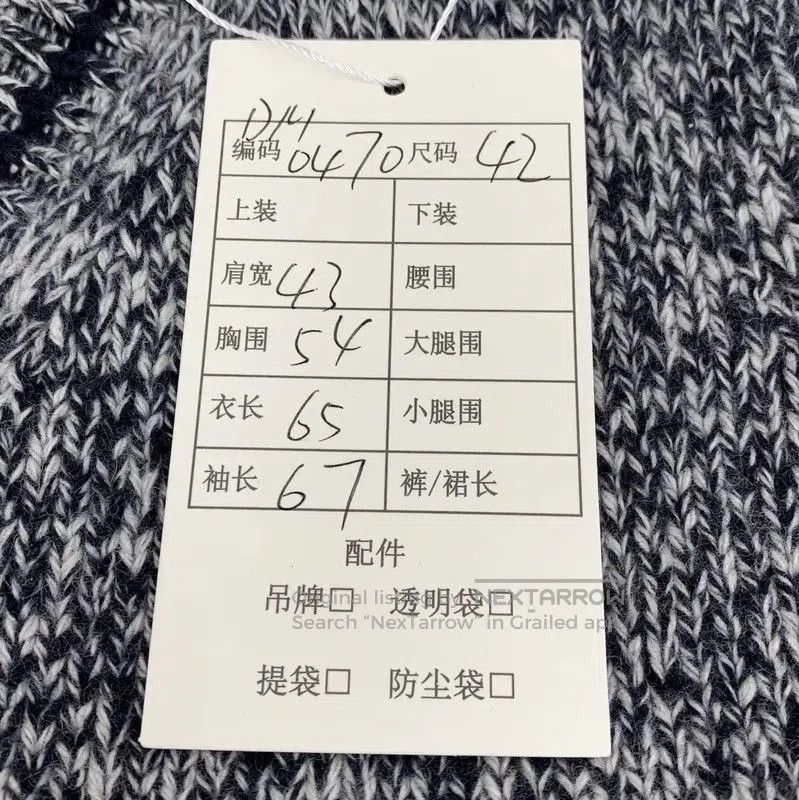 DM
编码 0470 尺码 42
上装 下装
肩宽 43 腰围
胸围 54 大腿围
衣长 65 小腿围
袖长 67 裤/裙长
配件
吊牌□ 透明袋□
Original listed by NEXTARROW
Search "NexTarrow" in Grailed ap
提袋□ 防尘袋□